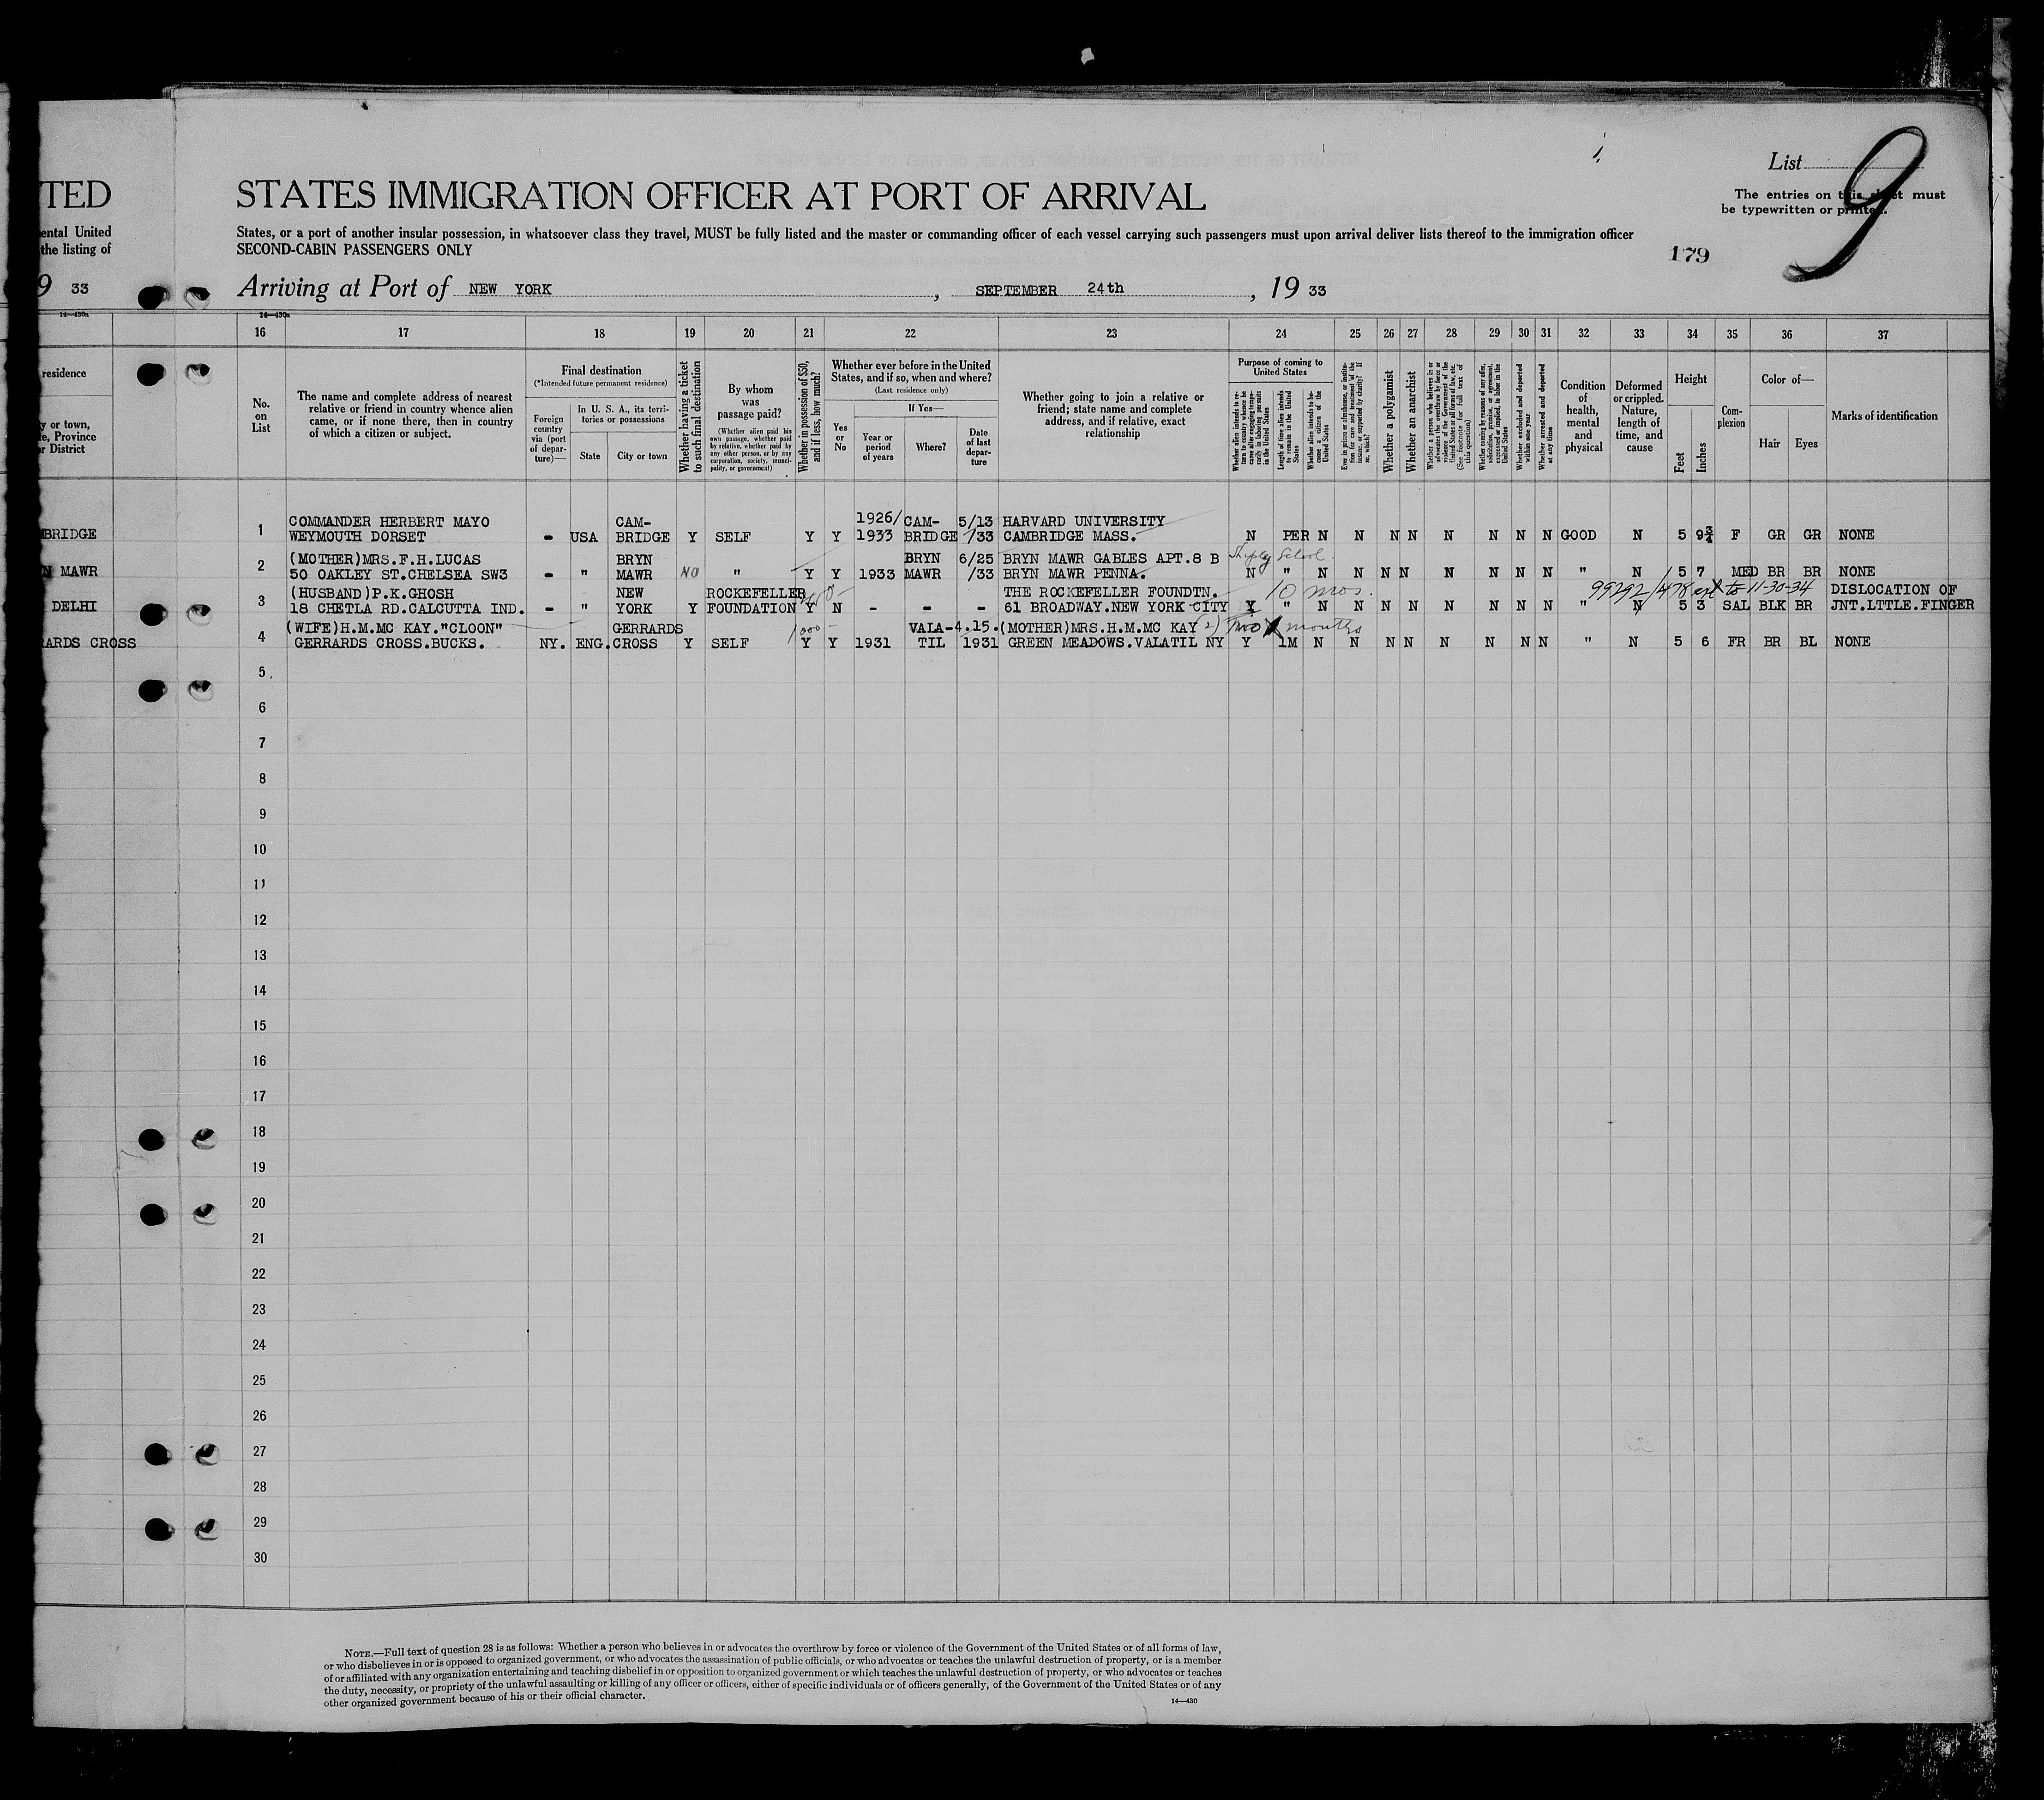 TED
ental United
the listing of
9 33
14—430a
residence
y or town,
e, Province
or District
BRIDGE
N MAWR
DELHI
ARDS CROSS
List 9
The entries on this sheet must
be typewritten or printed.
179
STATES IMMIGRATION OFFICER AT PORT OF ARRIVAL
States, or a port of another insular possession, in whatsoever class they travel, MUST be fully listed and the master or commanding officer of each vessel carrying such passengers must upon arrival deliver lists thereof to the immigration officer
SECOND-CABIN PASSENGERS ONLY
Arriving at Port of NEW YORK, SEPTEMBER 24th, 19 33
14—430a
16 17 18 19 20 21 22 23 24 25 26 27 28 29 30 31 32 33 34 35 36 37
No.
on
List
The name and complete address of nearest
relative or friend in country whence alien
came, or if none there, then in country
of which a citizen or subject.
Final destination
(*Intended future permanent residence)
Foreign
country
via (port
of depar-
ture)—
In U. S. A., its terri-
tories or possessions
State
City or town
Whether having a ticket
to such final destination
By whom
was
passage paid?
(Whether alien paid his
own passage, whether paid
by relative, whether paid by
any other person, or by any
corporation, society, munici-
pality, or government)
Whether in possession of $50,
and if less, how much?
Whether ever before in the United
States, and if so, when and where?
(Last residence only)
Yes
or
No
If Yes—
Year or
period
of years
Where?
Date
of last
depar-
ture
Whether going to join a relative or
friend; state name and complete
address, and if relative, exact
relationship
Purpose of coming to
United States
Whether alien intends to re-
turn to country whence he
came after engaging tempo-
rarily in laboring pursuits
in the United States
Length of time alien intends
to remain in the United
States
Whether alien intends to be-
come a citizen of the
United States
Ever in prison or almshouse, or institu-
tion for care and treatment of the
insane, or supported by charity? If
so, which?
Whether a polygamist
Whether an anarchist
Whether a person who believes in or
advocates the overthrow by force or
violence of the Government of the
United States or all forms of law, etc.
(See footnote for full text of
this question)
Whether coming by reasons of any offer,
solicitation, promise, or agreement,
expressed or implied, to labor in the
United States
Whether excluded and deported
within one year
Whether arrested and deported
at any time
Condition
of
health,
mental
and
physical
Deformed
or crippled.
Nature,
length of
time, and
cause
Height
Feet
Inches
Com-
plexion
Color of—
Hair
Eyes
Marks of identification
COMMANDER HERBERT MAYO CAM- 1926/ CAM- 5/13 HARVARD UNIVERSITY
1 WEYMOUTH DORSET - USA BRIDGE Y SELF Y Y 1933 BRIDGE /33 CAMBRIDGE MASS. N PER N N N N N N N N GOOD N 5 9¾ F GR GR NONE
(MOTHER)MRS.F.H.LUCAS BRYN BRYN 6/25 BRYN MAWR GABLES APT.8 B School
2 50 OAKLEY ST.CHELSEA SW3 - " MAWR NO " Y Y 1933 MAWR /33 BRYN MAWR PENNA. N " N N N N N N N N " N 5 7 MED BR BR NONE
(HUSBAND)P.K.GHOSH NEW ROCKEFELLER THE ROCKEFELLER FOUNDTN. 10 mos. 99292/478 ext to 11-30-34 DISLOCATION OF
3 18 CHETLA RD.CALCUTTA IND. - " YORK Y FOUNDATION Y N - - - 61 BROADWAY.NEW YORK CITY Y " N N N N N N N N " N 5 3 SAL BLK BR JNT.LTTLE.FINGER
(WIFE)H.M.MC KAY."CLOON" GERRARDS 1000- VALA- 4.15. (MOTHER)MRS.H.M.MC KAY Two months
4 GERRARDS CROSS.BUCKS. NY. ENG. CROSS Y SELF Y Y 1931 TIL 1931 GREEN MEADOWS.VALATIL NY Y 1M N N N N N N N N " N 5 6 FR BR BL NONE
5
6
7
8
9
10
11
12
13
14
15
16
17
18
19
20
21
22
23
24
25
26
27
28
29
30
NOTE.—Full text of question 28 is as follows: Whether a person who believes in or advocates the overthrow by force or violence of the Government of the United States or of all forms of law,
or who disbelieves in or is opposed to organized government, or who advocates the assassination of public officials, or who advocates or teaches the unlawful destruction of property, or is a member
of or affiliated with any organization entertaining and teaching disbelief in or opposition to organized government or which teaches the unlawful destruction of property, or who advocates or teaches
the duty, necessity, or propriety of the unlawful assaulting or killing of any officer or officers, either of specific individuals or of officers generally, of the Government of the United States or of any
other organized government because of his or their official character.
14—430